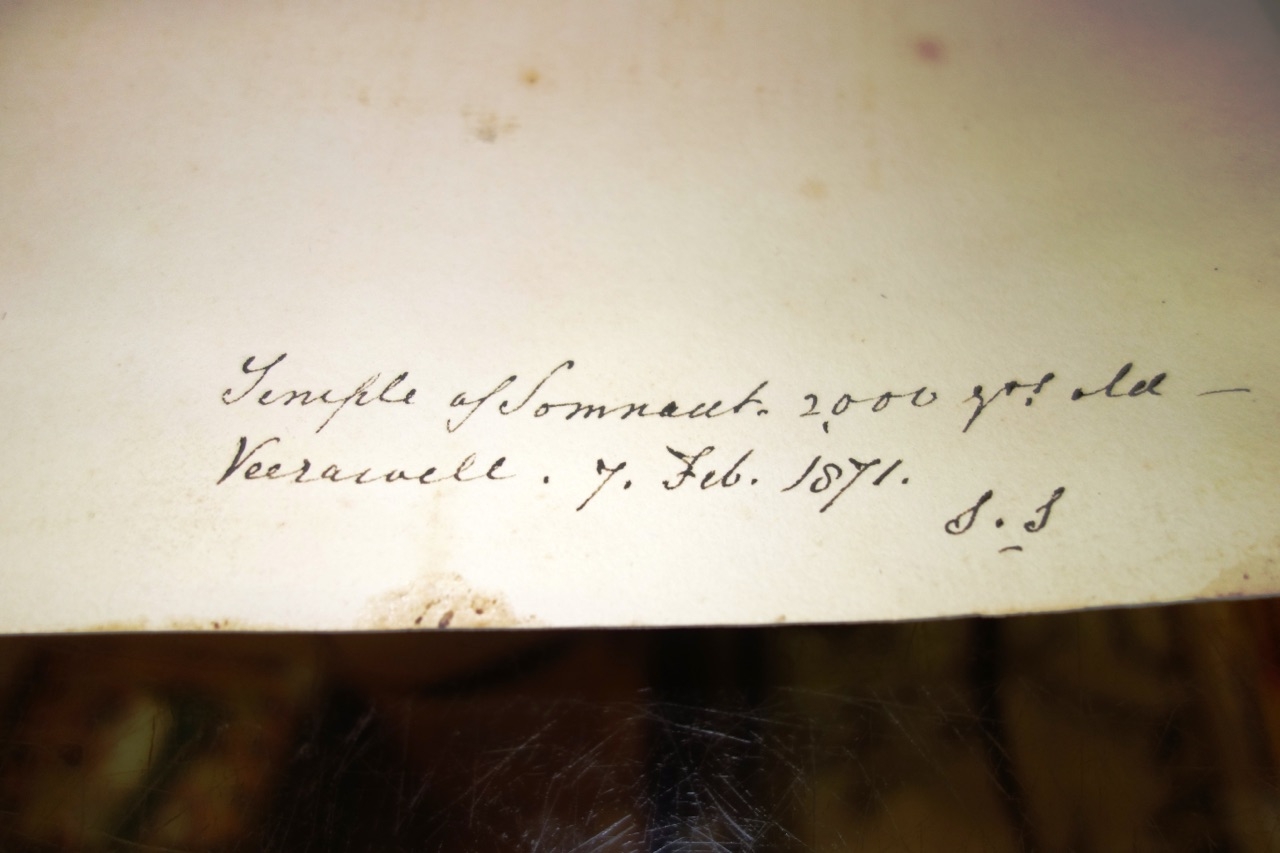 Temple of Somnaut. 2,000 yrs. old —
Veerawell. 7. Feb. 1871.
S.S